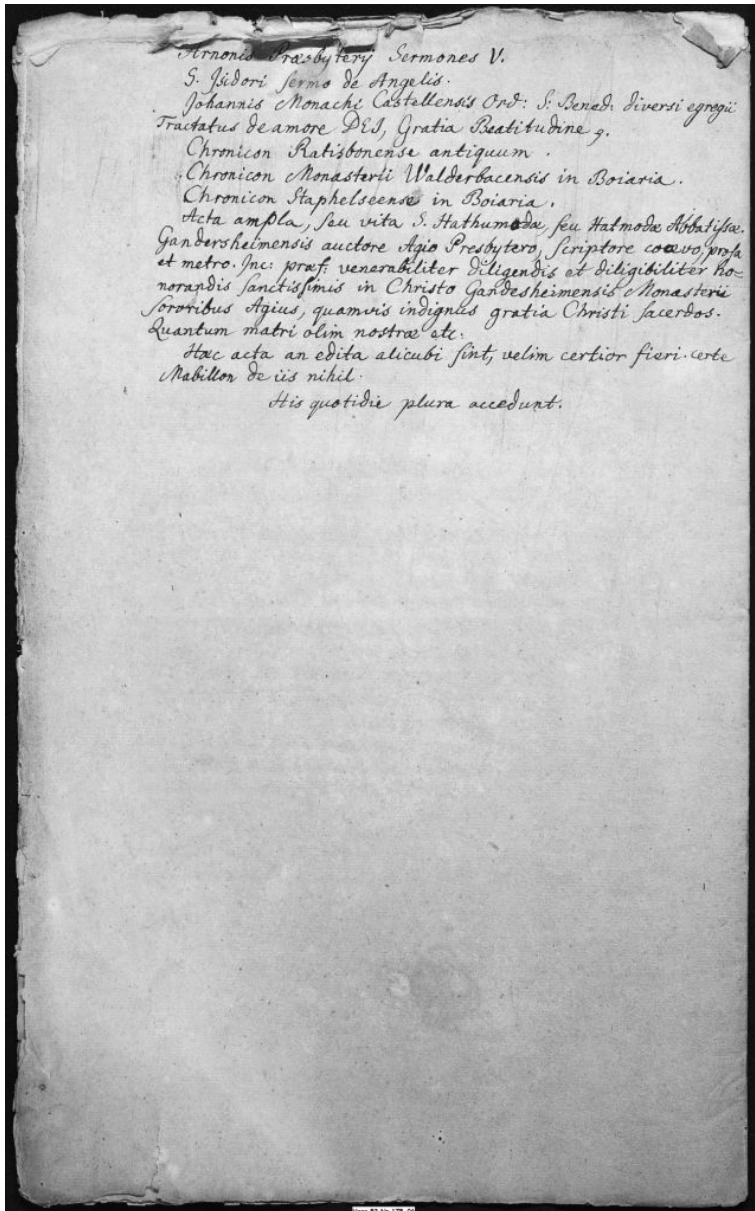 Arnonis Præsbyterij Sermones V.
S. Isidori sermo de Angelis.
Johannis Monachi Castellensis Ord: S: Bened: diversi egregii
Tractatus de amore DEI, Gratia Beatitudine 9.
Chronicon Ratisbonense antiquum.
Chronicon Monasterii Walderbacensis in Boiaria.
Chronicon Staphelseense in Boiaria.
Acta ampla, seu vita S. Hathumodæ, seu Hatmodæ Abbatissæ
Gandersheimensis auctore Agio Presbytero, scriptore coævo, prosa
et metro. Inc: præf: venerabiliter diligendis et diligibiliter ho=
norandis sanctissimis in Christo Gandesheimensis Monasterii
sororibus Agius, quamvis indignus gratia Christi sacerdos.
Quantum matri olim nostræ etc.
Hæc acta an edita alicubi sint, velim certior fieri. certe
Mabillon de iis nihil.
His quotidie plura accedunt.